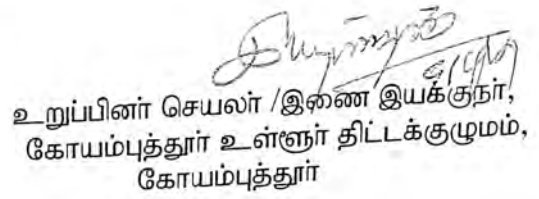 உறுப்பினர் செயலர் /இணை இயக்குநர்,
கோயம்புத்தூர் உள்ளூர் திட்டக்குழுமம்,
கோயம்புத்தூர்